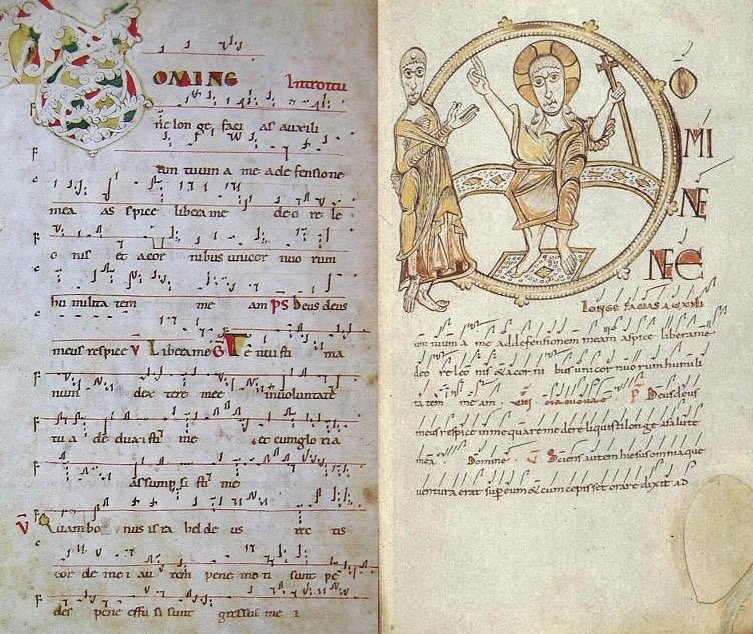 OMINE Introitu
ne lon ge faci as auxili
um tuum a me ad defensione
mea as spice libera me de o re le
o nis et a cor nibus unicor nuo rum
hu milita tem me am PS Deus deus
meus respice V Libera me G Te nuisti ma
num dex tere mee in voluntate
tu a de duxi sti me et cum glo ria
as sump si sti me
V Quam bo nus is ra hel de us rec tis
cor de me i au tem pene mo ti sunt pe
des pene effu si sunt gressus me i
O
MI
NE
NE
LONGE FACIAS AUXILI
um tuum a me ad defensionem meam aspice libera me
de o re leo nis & a cor ni bus unicor nuo rum humili
ta tem me am. P Deus deus
meus respice in me quare me dereliquisti longe a salute
mea Domine. V Sciens autem hiesus omnia que
ventura erat sup eum & cum cepisset orare dixit ad